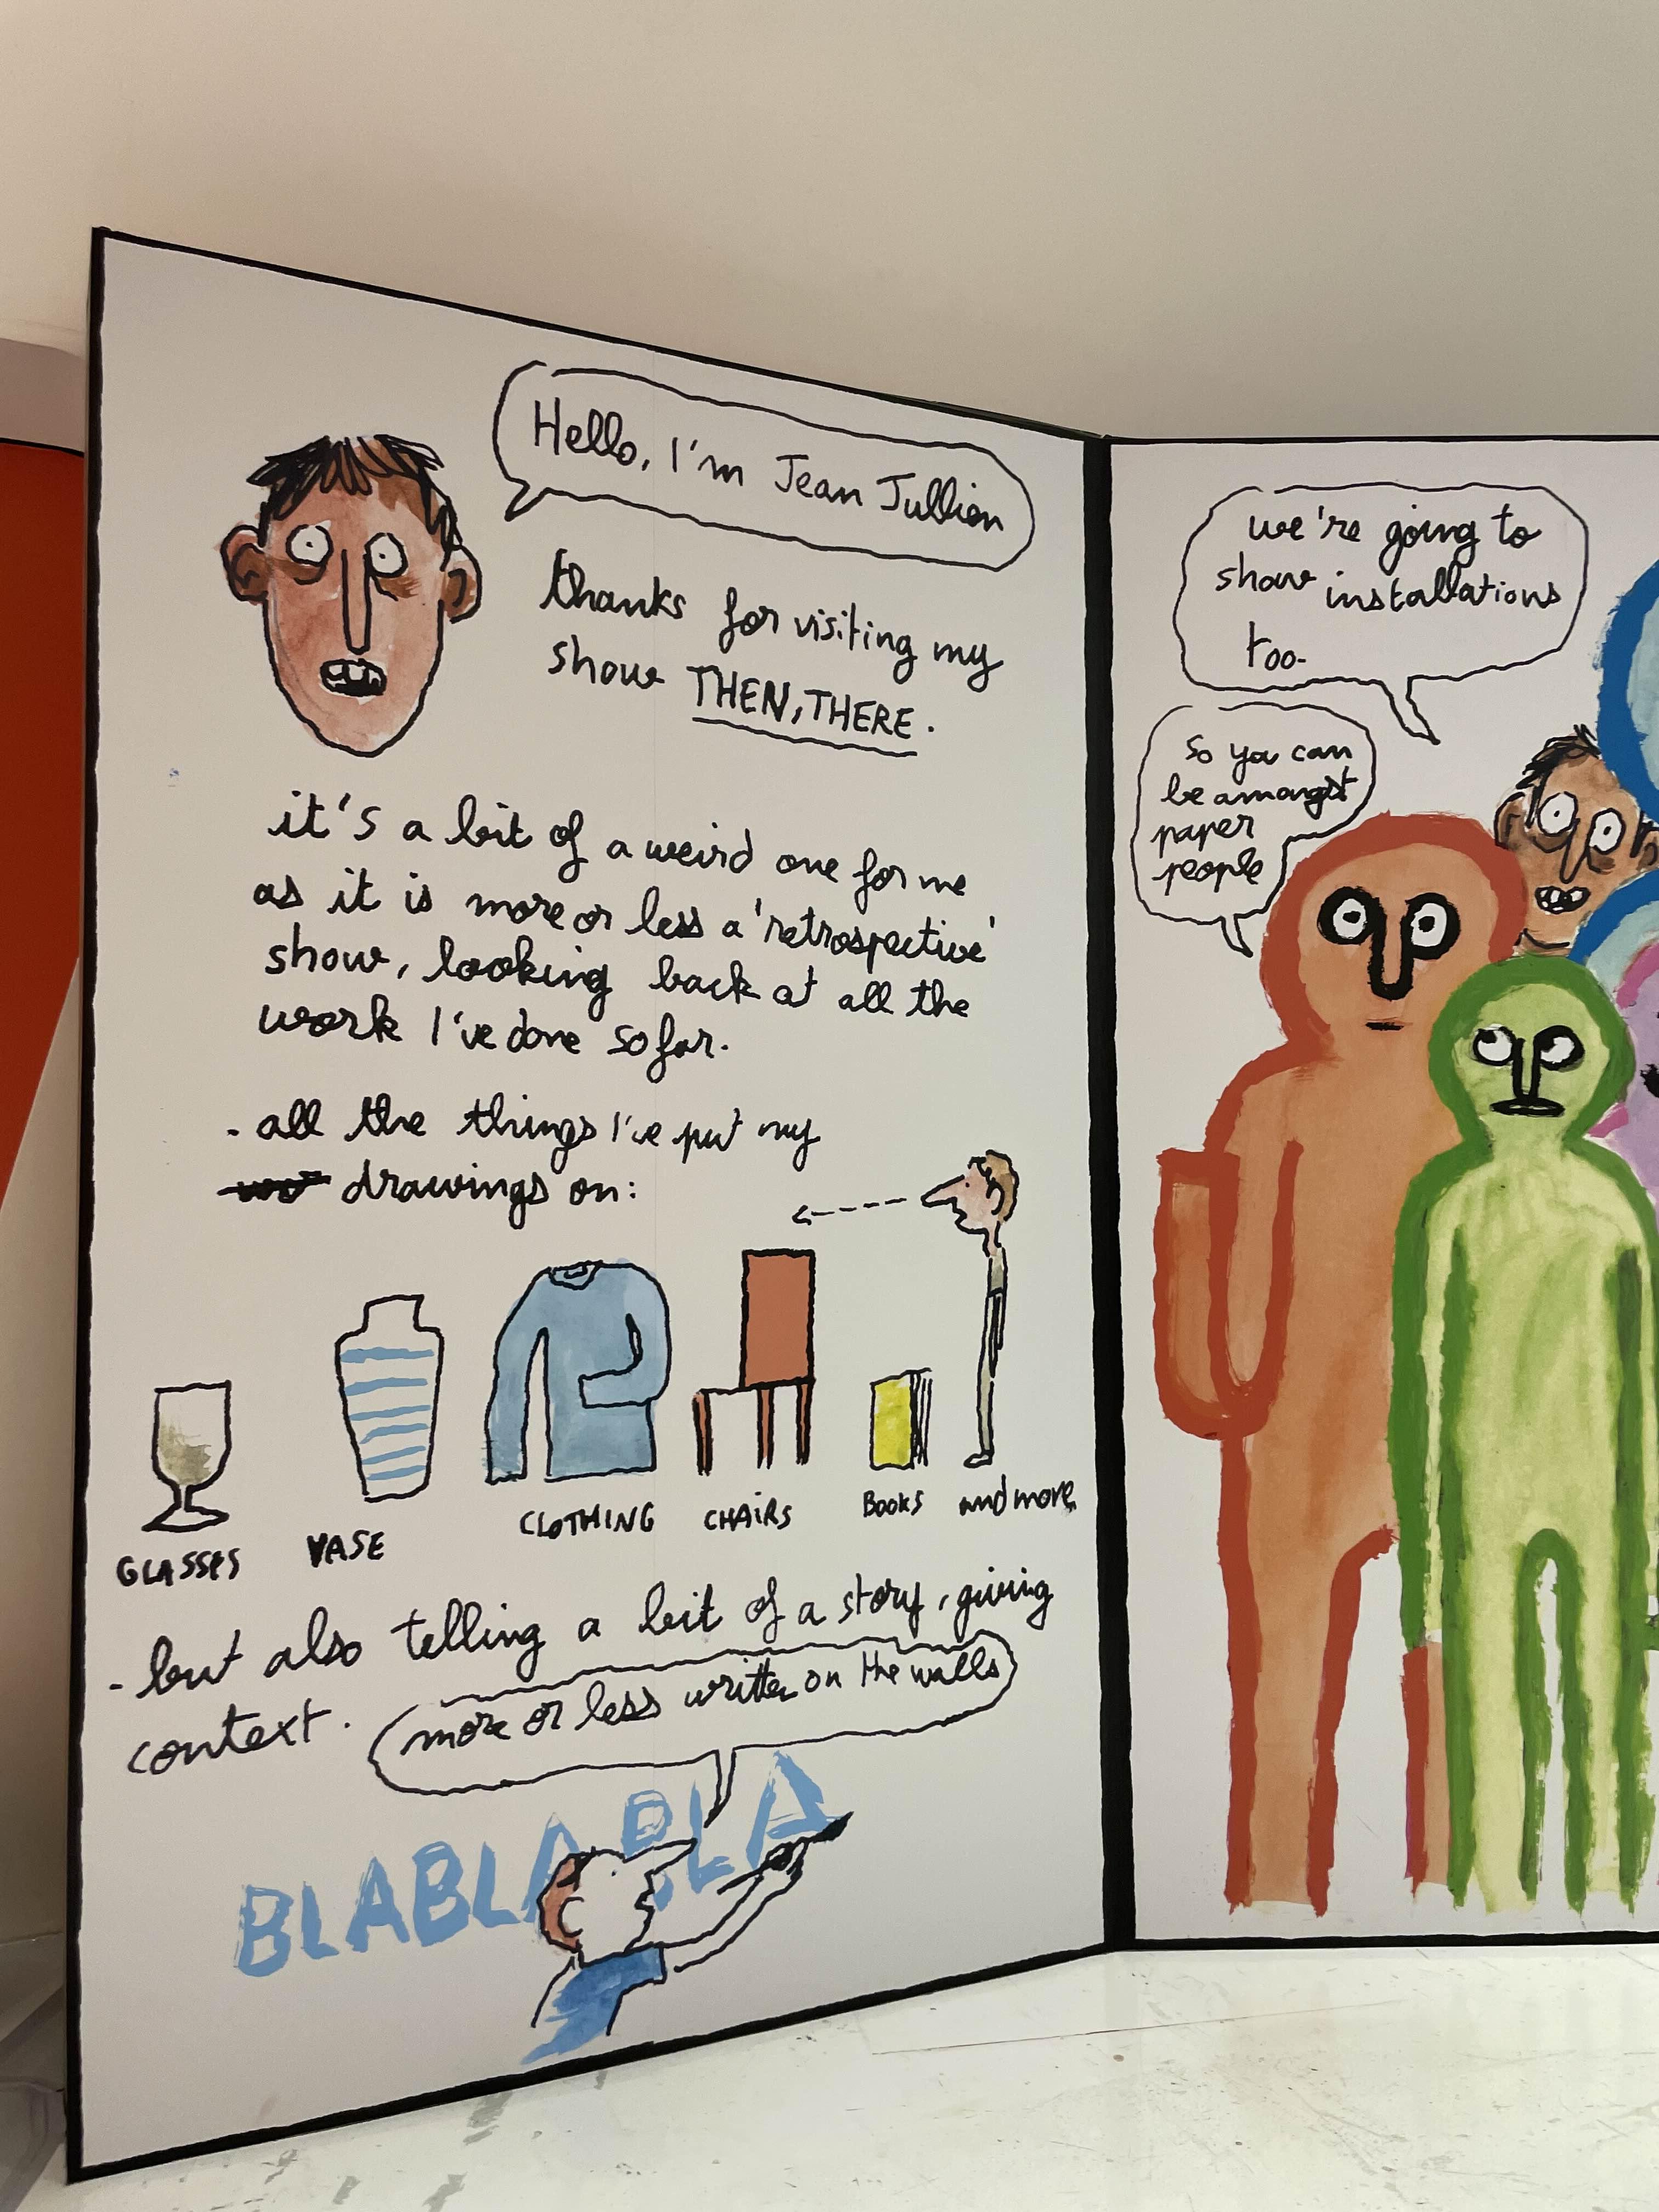 Hello, I'm Jean Jullien
thanks for visiting my
show THEN, THERE.
it's a bit of a weird one for me
as it is more or less a 'retrospective'
show, looking back at all the
work I've done so far.
- all the things I've put my
drawings on:
GLASSES
VASE
CLOTHING
CHAIRS
BOOKS
and more
- but also telling a bit of a story, giving
context.
more or less written on the walls
BLABLABLA
we're going to
show installations
too.
so you can
be amongst
paper
people